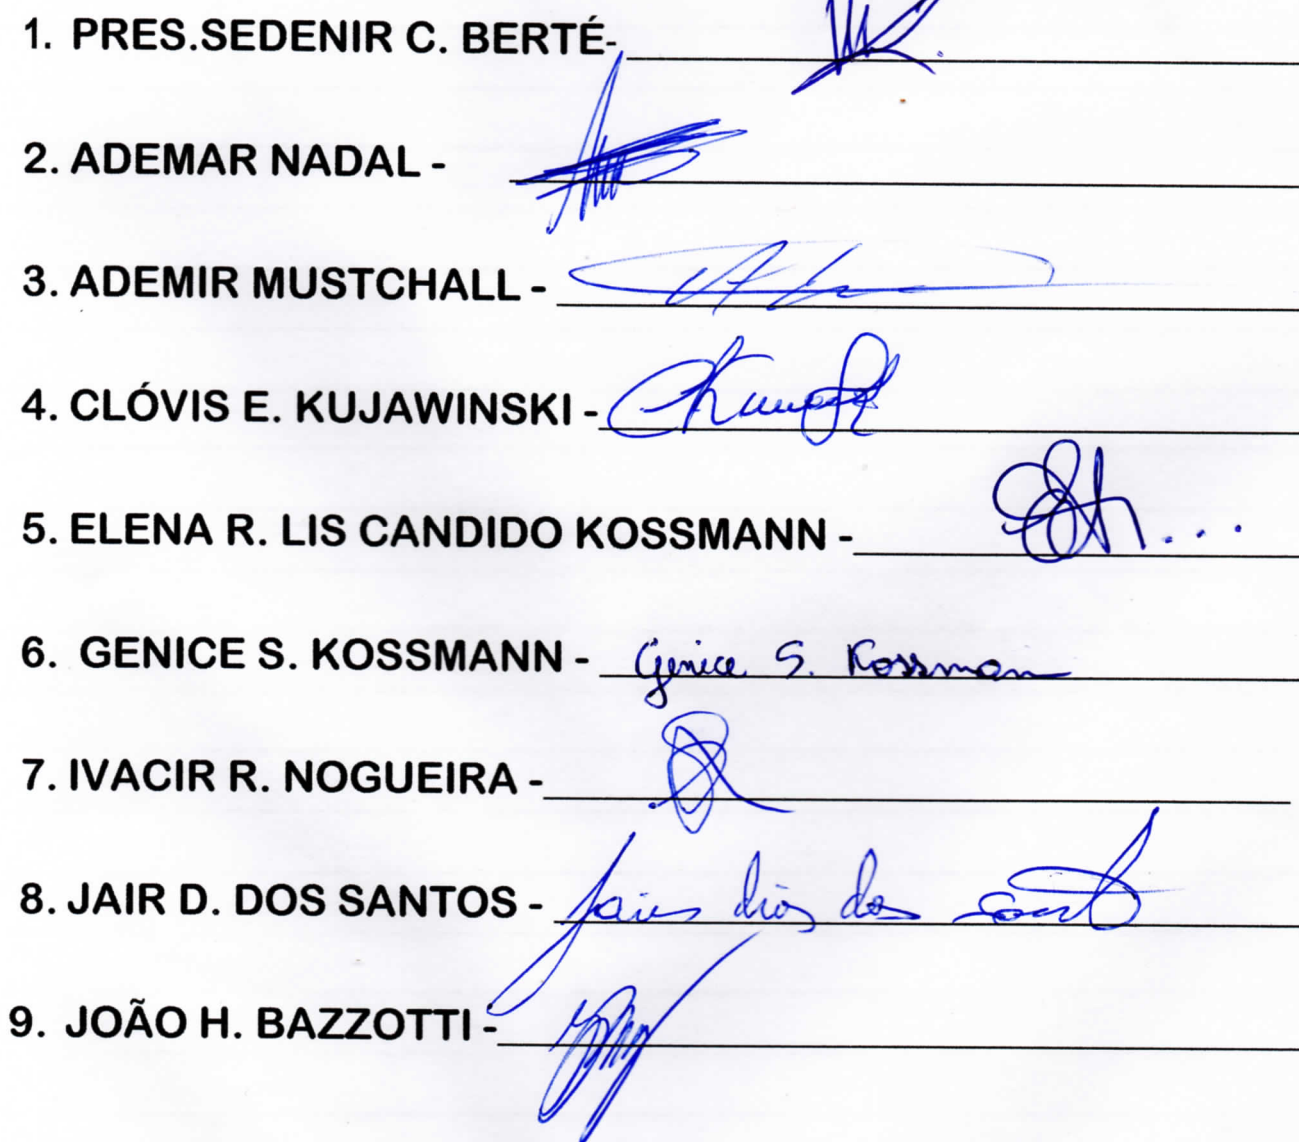 1. PRES.SEDENIR C. BERTÉ-
2. ADEMAR NADAL -
3. ADEMIR MUSTCHALL -
4. CLÓVIS E. KUJAWINSKI -
5. ELENA R. LIS CANDIDO KOSSMANN -
6. GENICE S. KOSSMANN - Genice S. Kossman
7. IVACIR R. NOGUEIRA -
8. JAIR D. DOS SANTOS - Jair dias dos
9. JOÃO H. BAZZOTTI -